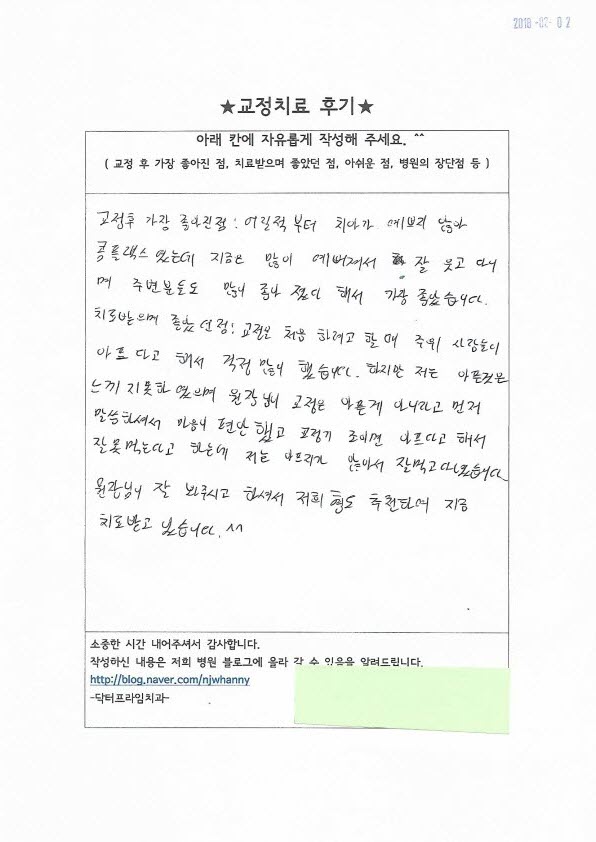 2018 -02- 02
★교정치료 후기★
아래 칸에 자유롭게 작성해 주세요. ^^
( 교정 후 가장 좋아진 점, 치료받으며 좋았던 점, 아쉬운 점, 병원의 장단점 등 )
교정후 가장 좋아진점 : 어릴적 부터 치아가 예쁘지 않아
콤플랙스 였는데 지금은 많이 예뻐져서 잘 웃고 다니
며 주변분들도 많이 좋아 졌다 해서 가장 좋았습니다.
치료받으며 좋았던점 : 교정은 처음 하려고 할 때 주위 사람들이
아프다고 해서 걱정 많이 했습니다. 하지만 저는 아픈것은
느끼지못하였으며 원장님이 교정은 아픈게 아니라고 먼저
말씀하셔서 마음이 편안했고 교정기 조이면 아프다고 해서
잘못먹는다고 하는데 저는 아프지가 않아서 잘먹고다녔습니다
원장님이 잘 봐주시고 하셔서 저희 형도 추천하여 지금
치료받고 있습니다. ^^
소중한 시간 내어주셔서 감사합니다.
작성하신 내용은 저희 병원 블로그에 올라 갈 수 있음을 알려드립니다.
http://blog.naver.com/njwhanny
-닥터프라임치과-